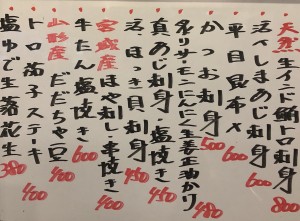 天然生インド鮪トロ刺身 800
活〆しまあじ刺身 600
平目昆布〆 600
かつお刺身 500
炙りサーモンにんにく生姜正油かり 480
真あじ刺身・塩焼き 450
活ほっき貝刺身 450
宮城産ほや刺し・串焼き 400
牛たん塩焼き 600
山形産だだちゃ豆 400
トロ茄子ステーキ 400
塩ゆで生落花生 380